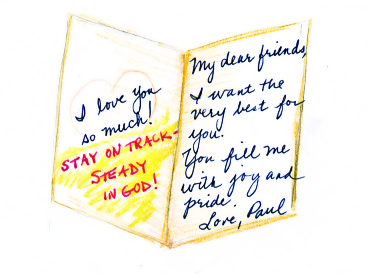 I love you
so much!
STAY ON TRACK-
STEADY
IN GOD!
My dear friends,
I want the
very best for
you.
You fill me
with joy and
pride.
Love, Paul